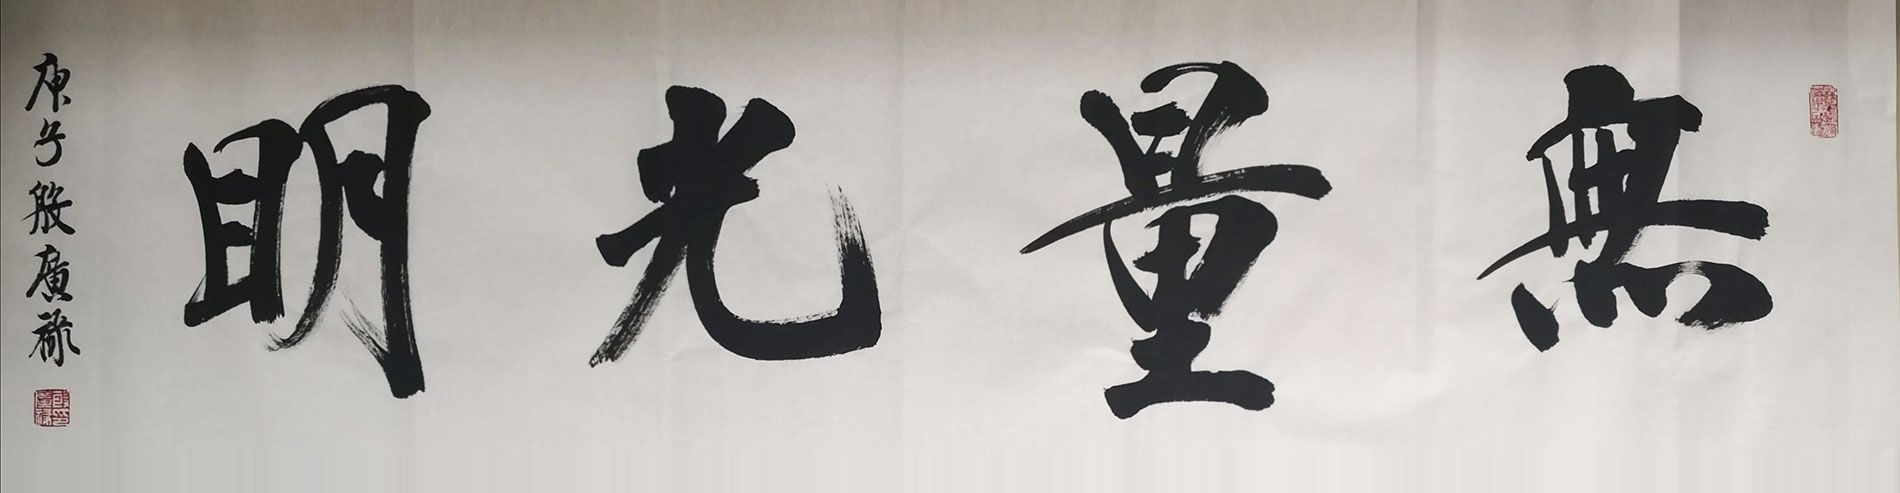 無量光明
庚子殷廣祿